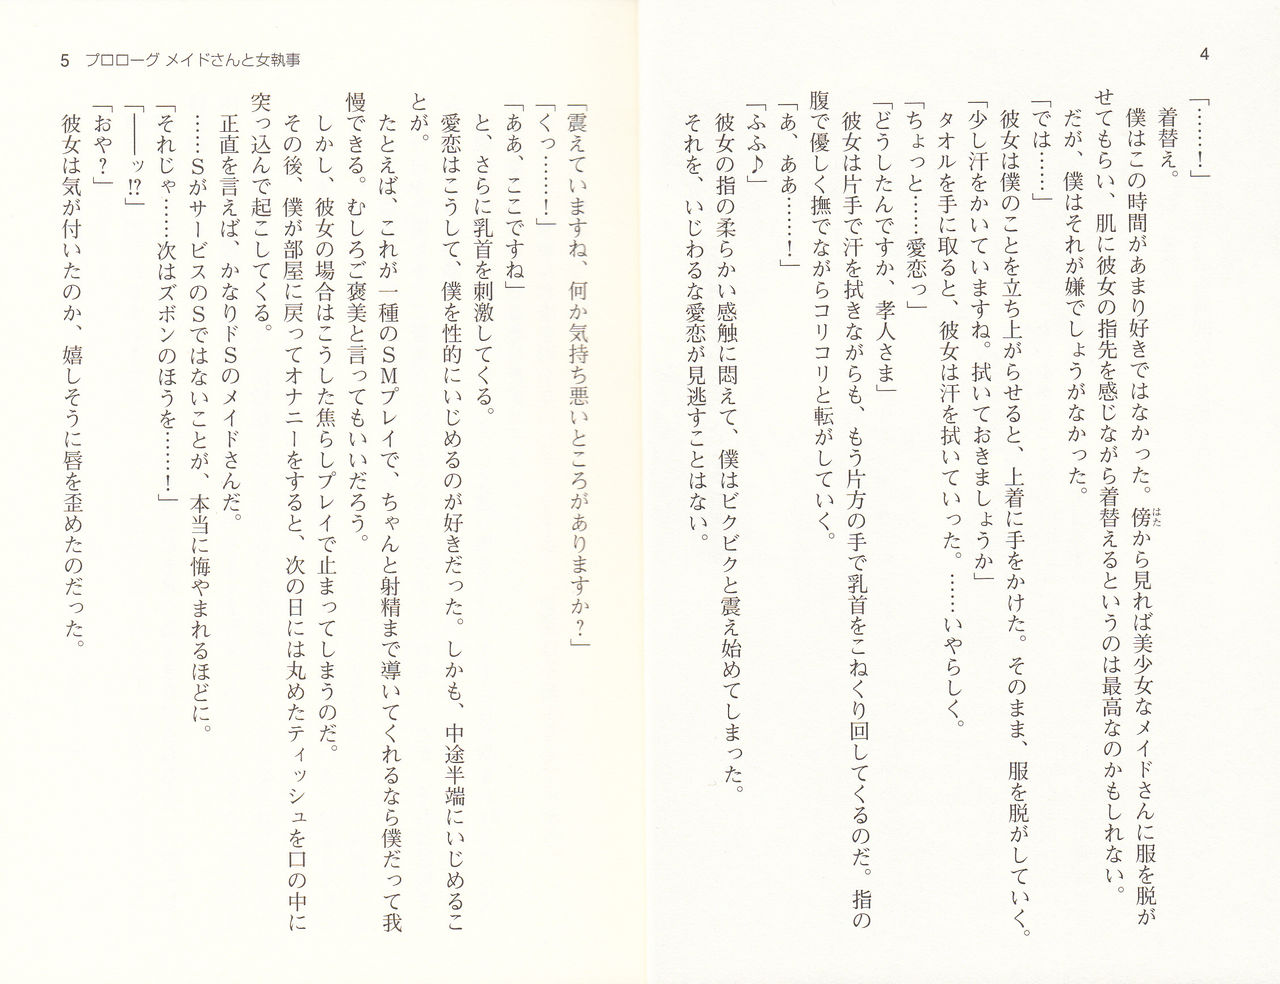 4
「……！」
着替え。
僕はこの時間があまり好きではなかった。傍から見れば美少女なメイドさんに服を脱が
はた
せてもらい、肌に彼女の指先を感じながら着替えるというのは最高なのかもしれない。
だが、僕はそれが嫌でしょうがなかった。
「では……」
彼女は僕のことを立ち上がらせると、上着に手をかけた。そのまま、服を脱がしていく。
「少し汗をかいていますね。拭いておきましょうか」
タオルを手に取ると、彼女は汗を拭いていった。……いやらしく。
「ちょっと……愛恋っ」
「どうしたんですか、孝人さま」
彼女は片手で汗を拭きながらも、もう片方の手で乳首をこねくり回してくるのだ。指の
腹で優しく撫でながらコリコリと転がしていく。
「あ、ああ……！」
「ふふ♪」
彼女の指の柔らかい感触に悶えて、僕はビクビクと震え始めてしまった。
それを、いじわるな愛恋が見逃すことはない。
5 プロローグ メイドさんと女執事
「震えていますね、何か気持ち悪いところがありますか？」
「くっ……！」
「ああ、ここですね」
と、さらに乳首を刺激してくる。
愛恋はこうして、僕を性的にいじめるのが好きだった。しかも、中途半端にいじめるこ
とが。
たとえば、これが一種のＳＭプレイで、ちゃんと射精まで導いてくれるなら僕だって我
慢できる。むしろご褒美と言ってもいいだろう。
しかし、彼女の場合はこうした焦らしプレイで止まってしまうのだ。
その後、僕が部屋に戻ってオナニーをすると、次の日には丸めたティッシュを口の中に
突っ込んで起こしてくる。
正直を言えば、かなりドＳのメイドさんだ。
……ＳがサービスのＳではないことが、本当に悔やまれるほどに。
「それじゃ……次はズボンのほうを……！」
「――ッ!?」
「おや？」
彼女は気が付いたのか、嬉しそうに唇を歪めたのだった。